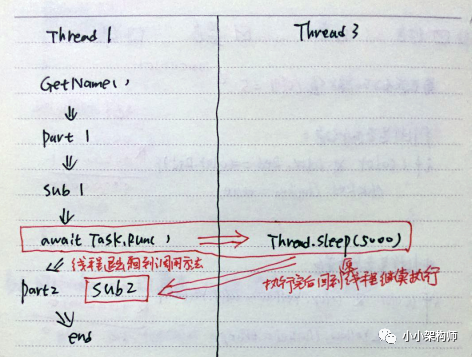 Thread 1
Thread 3
GetName();
part 1
sub 1
await Task.Run(
Thread.Sleep(5000)
线程退出回到调用方法
part2
sub2
执行完后回到原线程继续执行
end
小小架构师